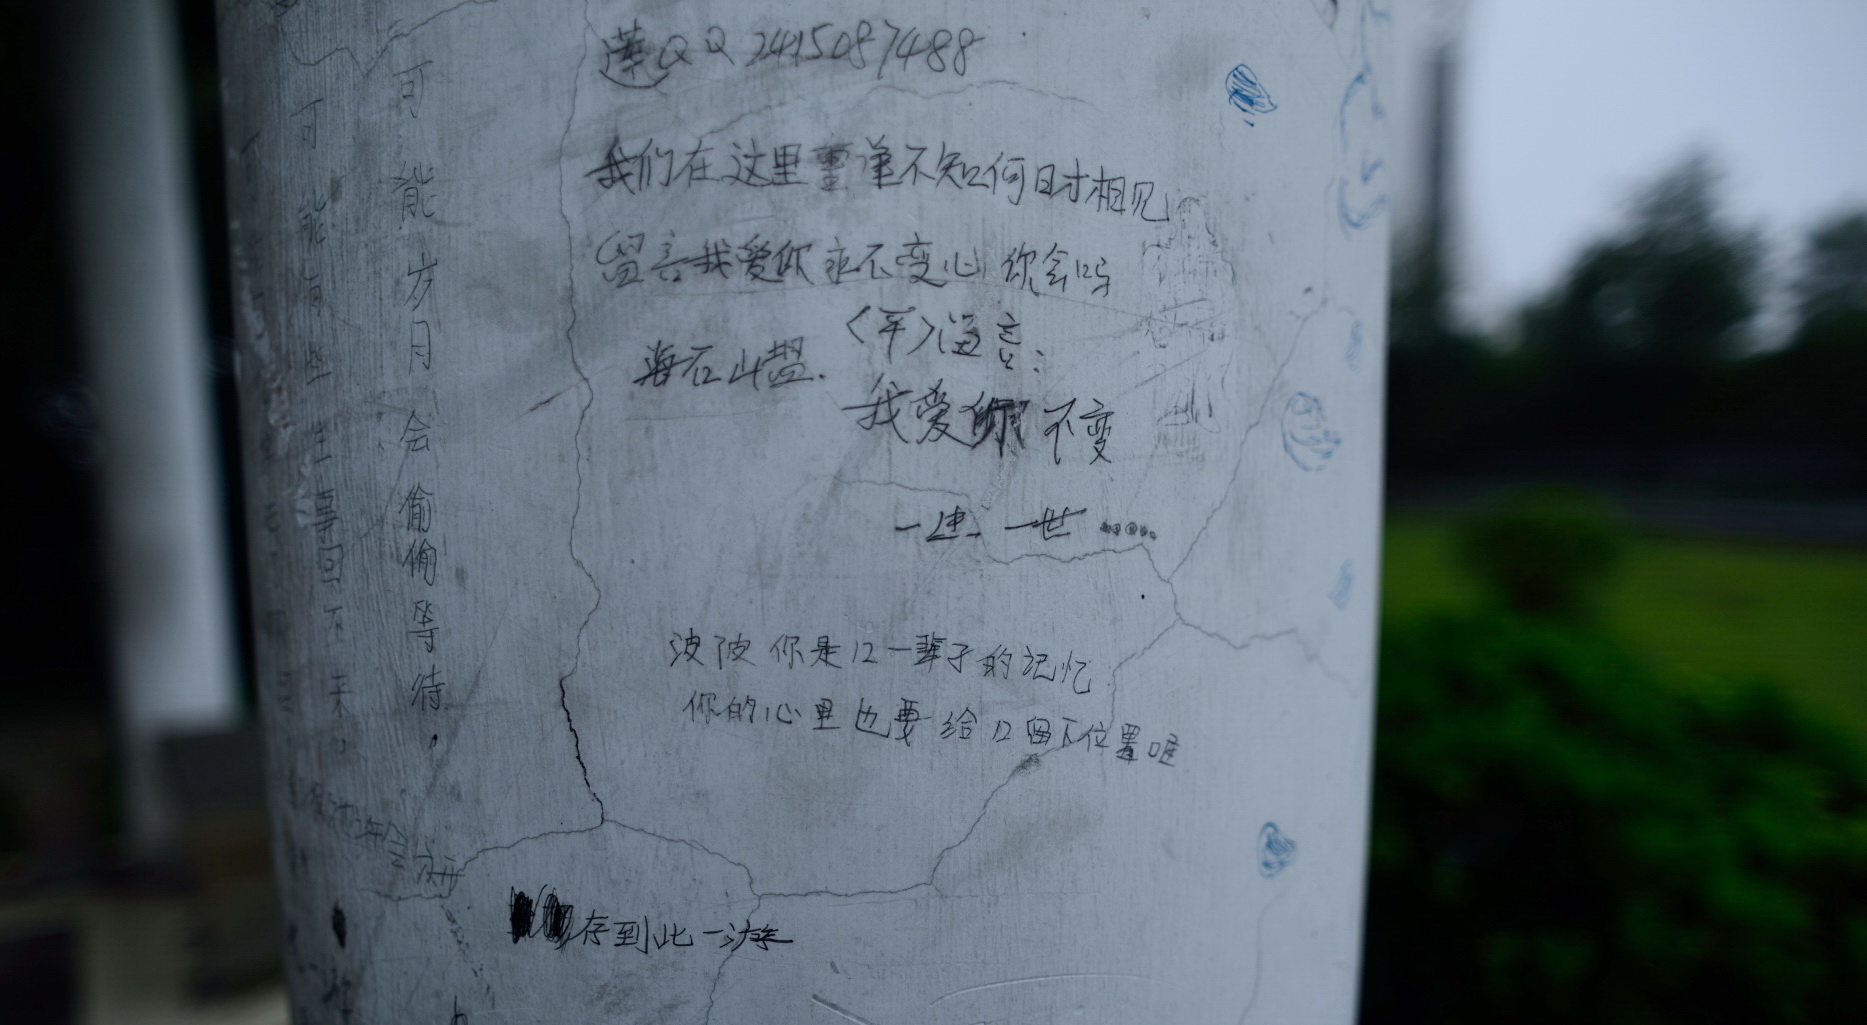 莲QQ 2415087488
我们在这里重逢不知何日才相见
留言我爱你 永不变心 你会吗
海石山盟.
〈军〉留言:
我爱你 不变
一速 一世……
波波 你是 一辈子的记忆
你的心里也要给 留下位置喔
存到此一游
可能岁月会偷偷等待，
可能有些往事回不来，